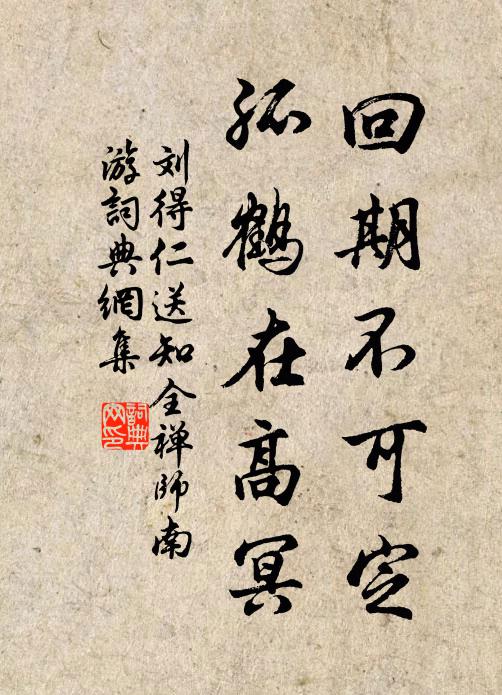 回期不可定
孤鹤在高冥
刘得仁送知全禅师南
游词典網集
詞典网印